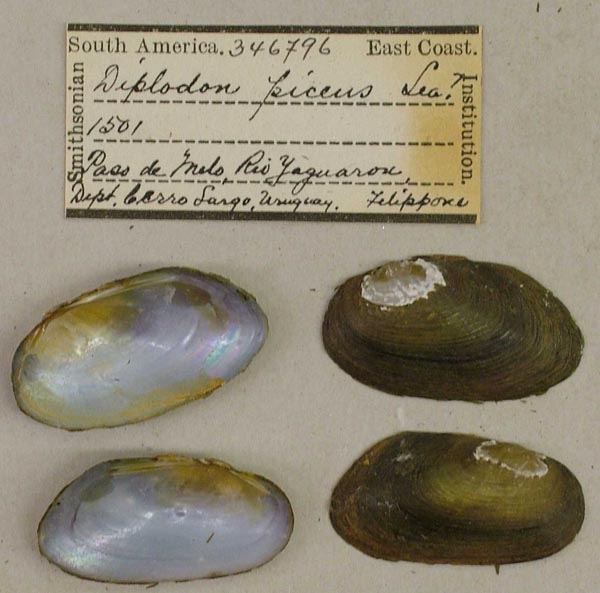 South America. 346796 East Coast.
Smithsonian
Institution.
Diplodon piceus Lea.?
1501
Paso de Melo, Rio Yaguaron,
Dept. Cerro Largo, Uruguay. Felippone